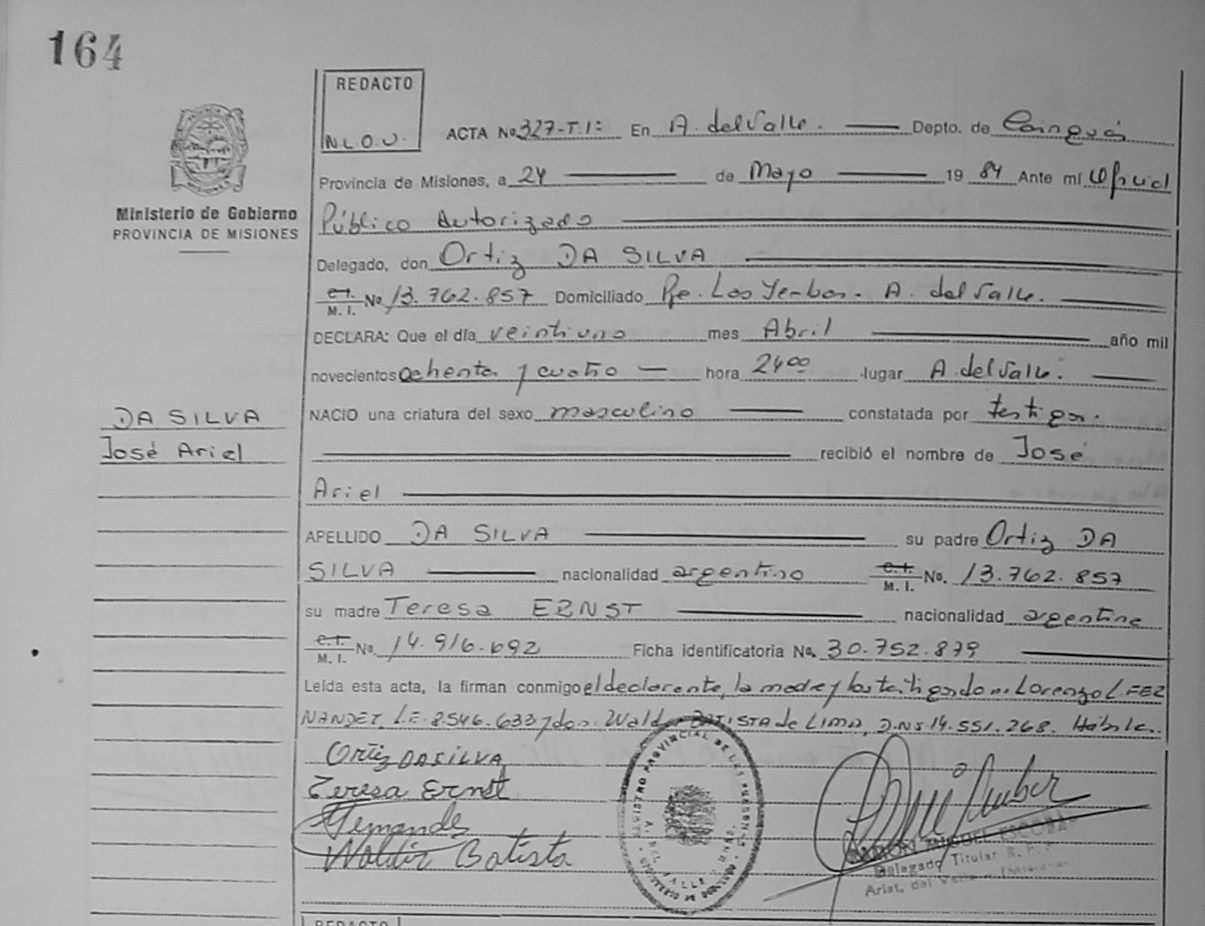 164
REDACTO
N.L.O.U.
ACTA No 327-T.1: En A. del Valle. Depto. de Cainguás
Provincia de Misiones, a 24 de Mayo 19 84 Ante mí Oficial
Ministerio de Gobierno
PROVINCIA DE MISIONES
Público Autorizado
Delegado, don Ortiz DA SILVA
C.I. M. I. No 13.762.857 Domiciliado Pje. Los Yerbas - A. del Valle.
DECLARA: Que el día veintiuno mes Abril año mil
novecientos ochenta y cuatro hora 24 00 lugar A. del Valle.
DA SILVA
José Ariel
NACIO una criatura del sexo masculino constatada por testigos.
recibió el nombre de José
Ariel
APELLIDO DA SILVA su padre Ortiz DA
SILVA nacionalidad argentino C.I. M. I. No. 13.762.857
su madre Teresa ERNST nacionalidad argentina
C.I. M. I. No 14.916.692 Ficha identificatoria No. 30.752.879
Leída esta acta, la firman conmigo el declarante, la madre y los testigos don Lorenzo L. FER
NANDEZ L.E. 8.546.633 y don Waldir BATISTA de Lima, D.N.I. 14.551.268. Hábiles.
Ortiz DASILVA
Teresa Ernst
Fernandez
Waldir Batista
REGISTRO PROVINCIAL DE LAS PERSONAS
A. DEL VALLE
MINISTERIO DE GOBIERNO
RAMON MIGUEL ESCOBAR
Delegado Titular R. P. P.
Arist. del Valle
REDACTO